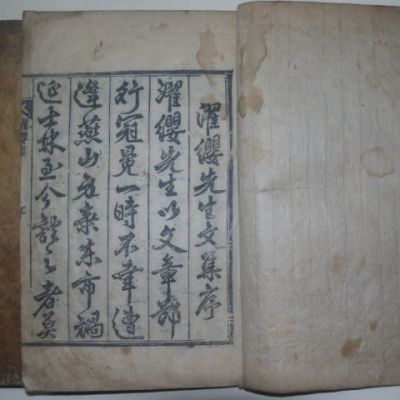 濯纓先生文集序
濯纓先生以文章節
行冠冕一時不幸遭
逢燕山棄東市禍
延士林至今談之者莫